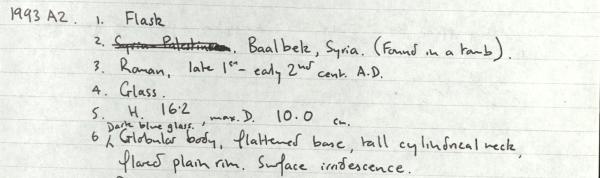 1993 A2. 1. Flask
2. Syria-Palestine. Baalbek, Syria. (Found in a tomb).
3. Roman, late 1st - early 2nd cent. A.D.
4. Glass.
5. H. 16.2, max. D. 10.0 cm.
Dark blue glass.
6 Globular body, flattened base, tall cylindrical neck,
flared plain rim. Surface irridescence.